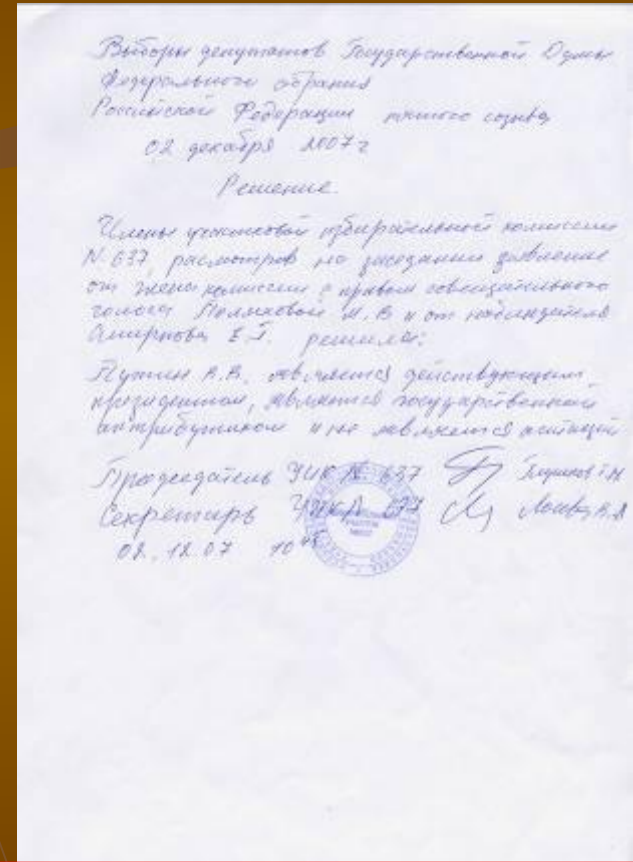 Выборы депутатов Государственной Думы
Федерального собрания
Российской Федерации пятого созыва
02 декабря 2007 г
Решение.
Члены участковой избирательной комиссии
N. 637, расмотров на заседании заявление
от члена комиссии с правом совещательного
голоса М. В и от наблюдателя
Смирнова Е.Г. решили:
Путин В.В. является действующим
президентом, является государственной
антрибутикой и не является агитацией
Председатель УИК N. 637
Секретарь УИК N. 637
02.12.07 10 45